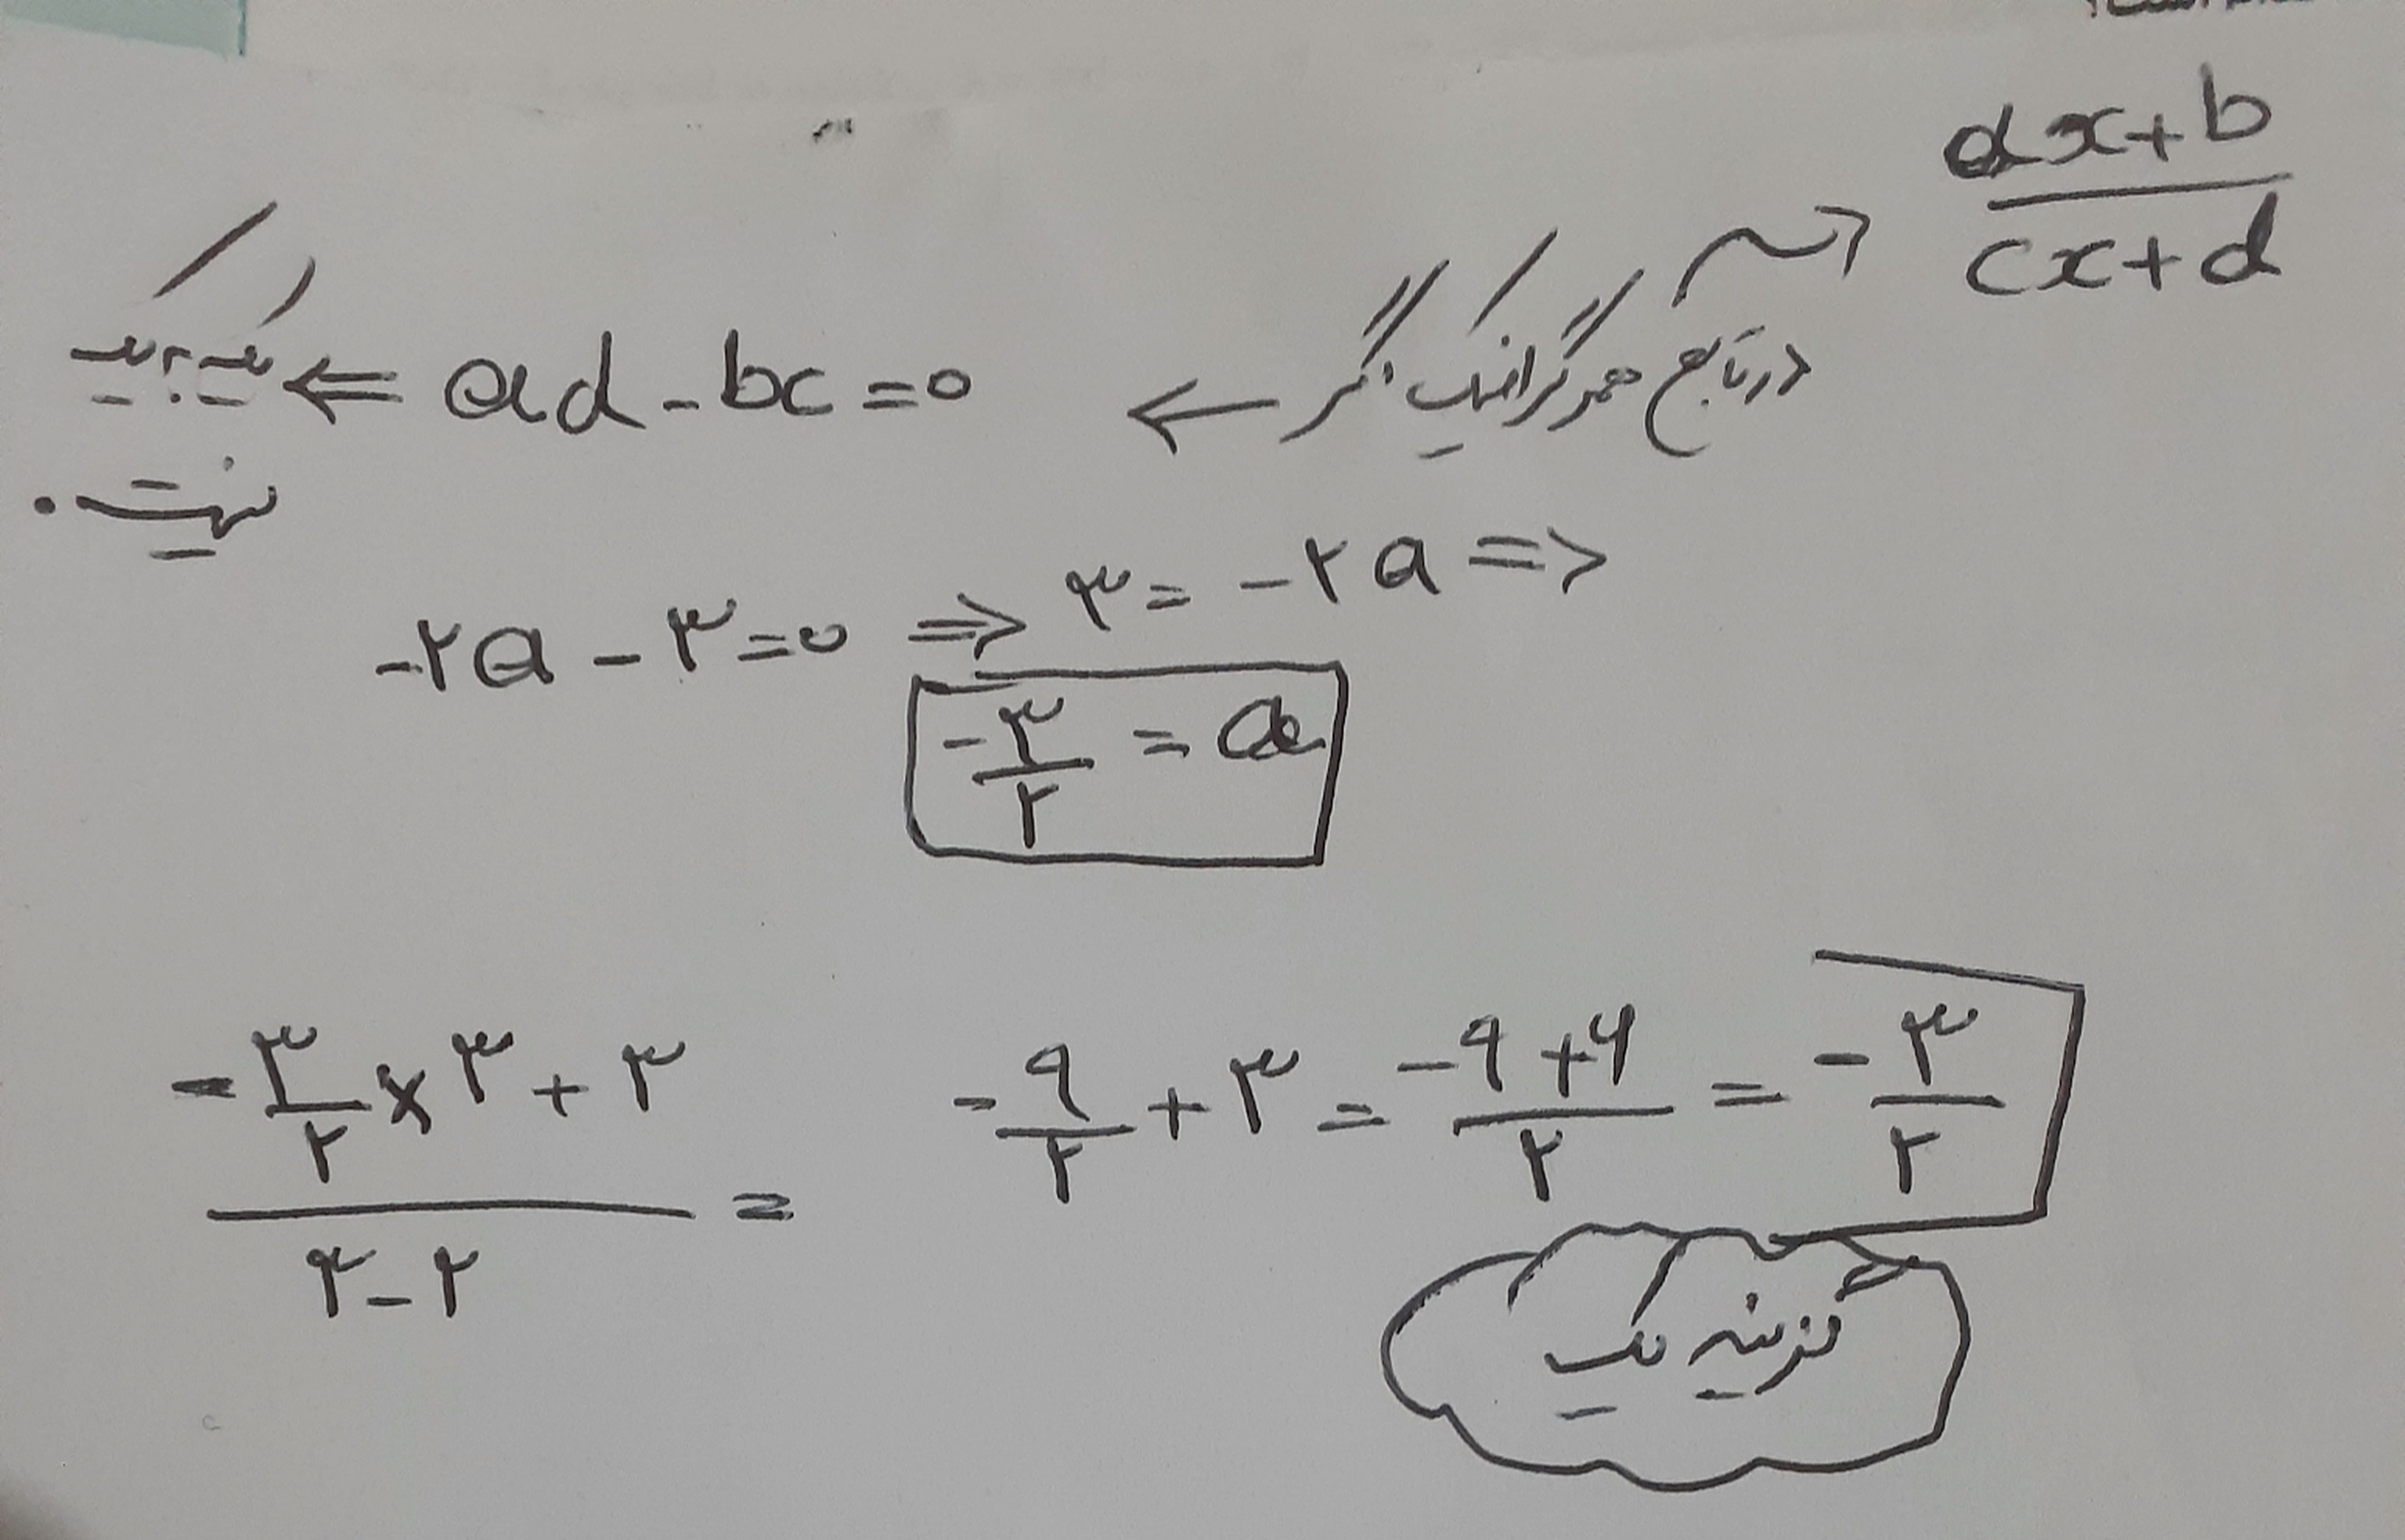 ax+b / cx+d
در تابع هموگرافیک اگر ← ad - bc = 0 ⇐ یک به یک
نیست.
-۲a - ۳ = 0 ⇒ ۳ = -۲a ⇒
-۳/۲ = a
(-۳/۲ × ۳ + ۳) / (۳ - ۲) = -۹/۲ + ۳ = (-۹ + ۶)/۲ = -۳/۲
گزینه یک